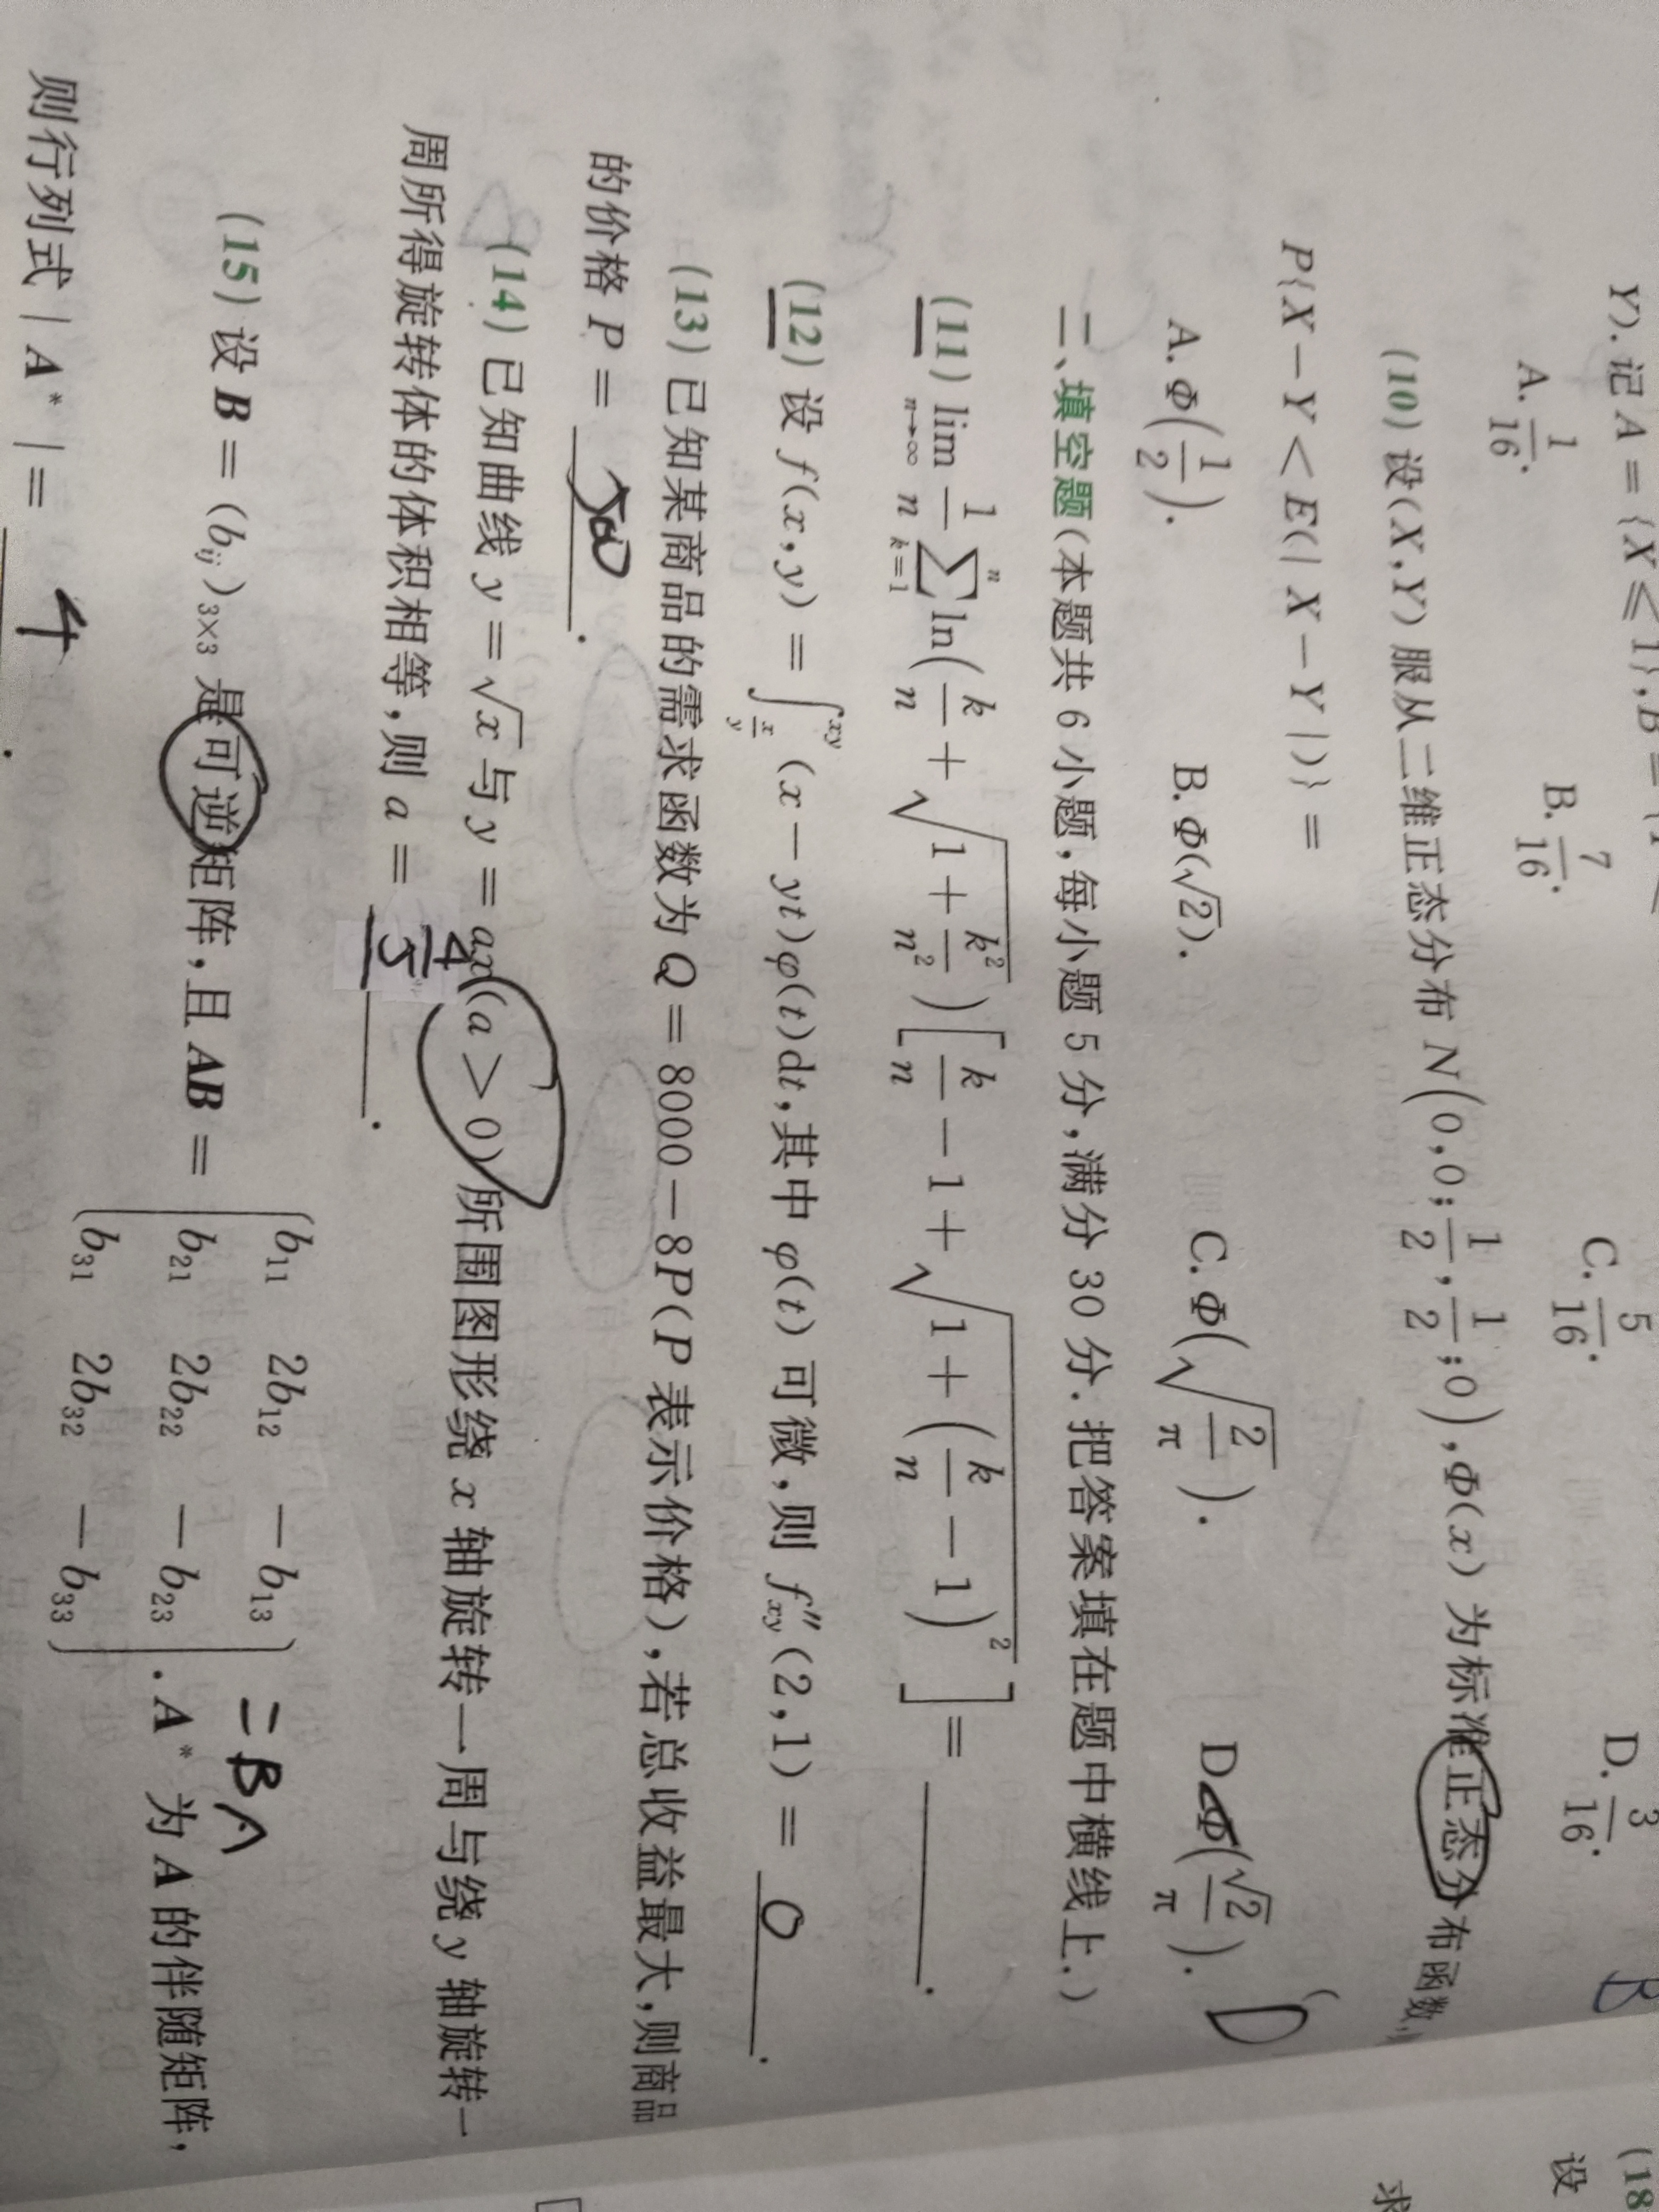 Y). 记 A = {X ⩽ 1}, B = {Y
A. 1/16. B. 7/16. C. 5/16. D. 3/16.
B
(10) 设(X,Y) 服从二维正态分布 N(0,0;1/2,1/2;0), Φ(x) 为标准正态分布函数,
P{X − Y < E(| X − Y |)} =
A. Φ(1/2). B. Φ(√2). C. Φ(√(2/π)). D. Φ(√2/π).
D
二、填空题(本题共 6 小题,每小题 5 分,满分 30 分. 把答案填在题中横线上.)
(11) lim_{n→∞} 1/n ∑_{k=1}^{n} ln(k/n + √(1 + k²/n²)) [k/n − 1 + √(1 + (k/n − 1)²)] = ______.
(12) 设 f(x,y) = ∫_{x/y}^{xy} (x − yt)φ(t)dt,其中 φ(t) 可微,则 f''_{xy}(2,1) = 0.
(13) 已知某商品的需求函数为 Q = 8000 − 8P(P 表示价格),若总收益最大,则商品
的价格 P = 500.
(14) 已知曲线 y = √x 与 y = ax(a > 0) 所围图形绕 x 轴旋转一周与绕 y 轴旋转一
周所得旋转体的体积相等,则 a = 4/5.
(15) 设 B = (b_{ij})_{3×3} 是可逆矩阵,且 AB =
b₁₁ 2b₁₂ − b₁₃
b₂₁ 2b₂₂ − b₂₃
b₃₁ 2b₃₂ − b₃₃
= BΛ
. A* 为 A 的伴随矩阵,
则行列式 | A* | = 4.
(18
设
求